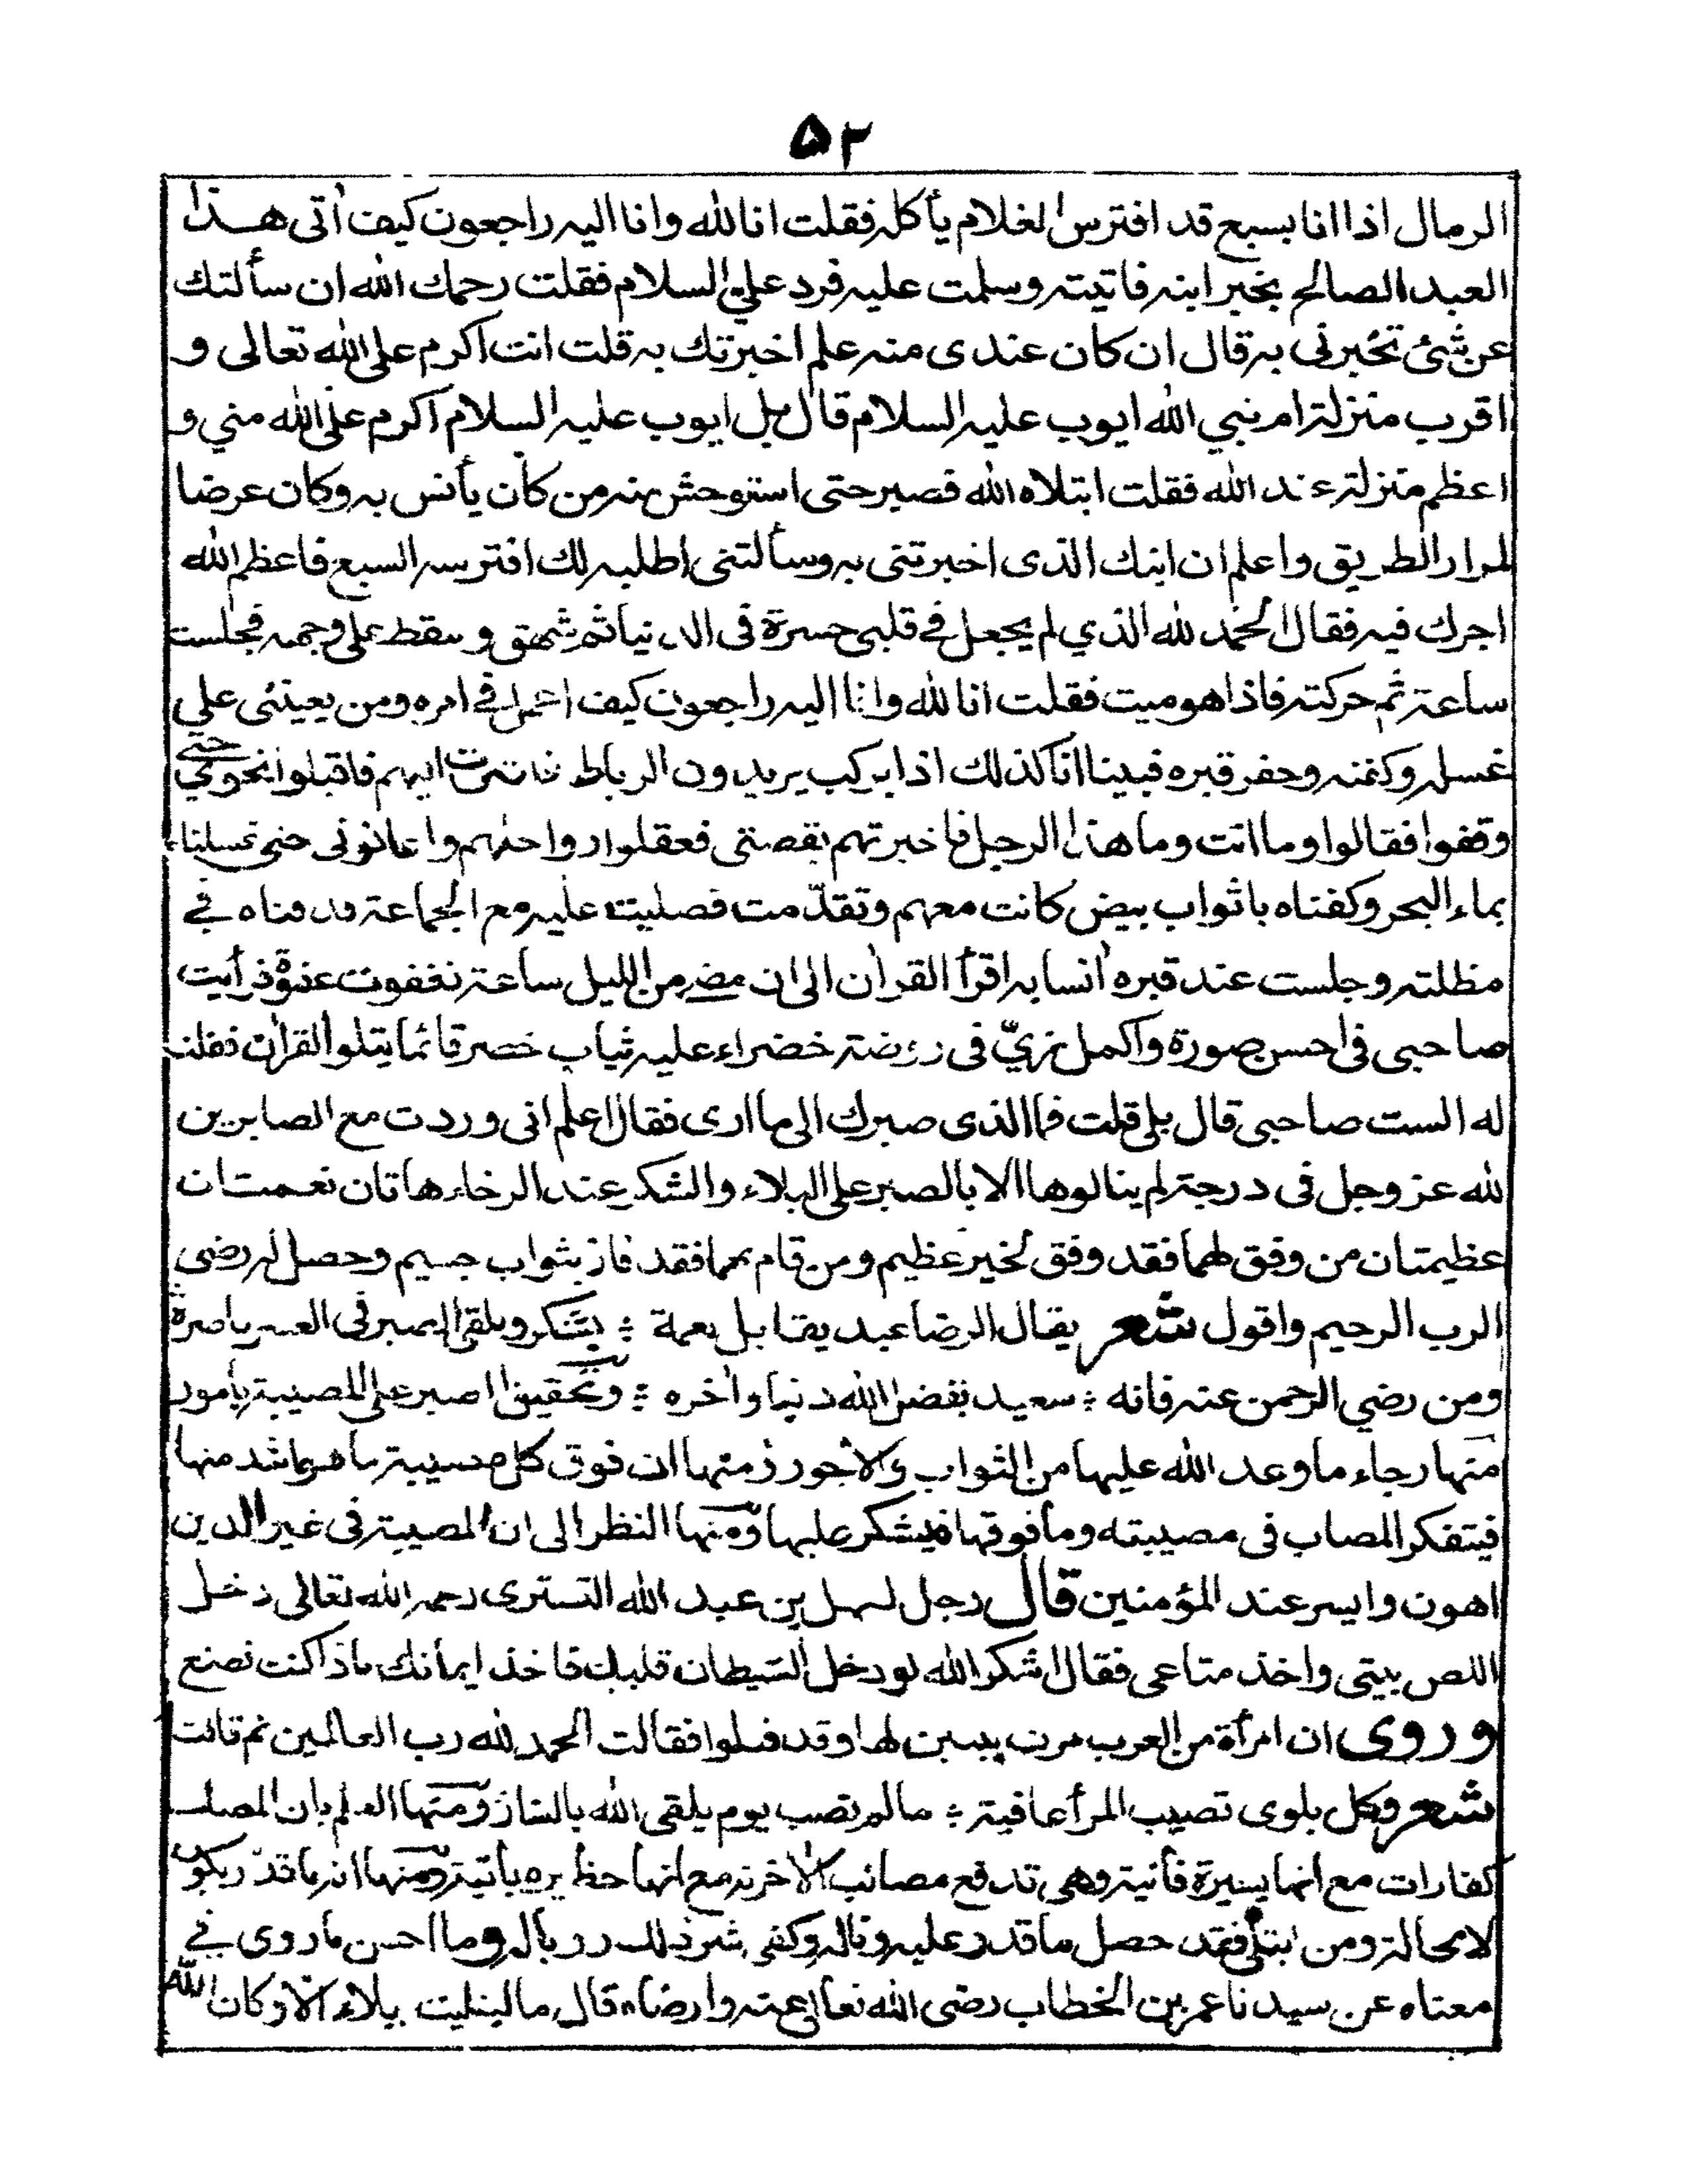 ۵۲
الرمال اذا انا بسبع قد افترس الغلام يأكله فقلت انا لله وانا اليه راجعون كيف أتى هذا
العبد الصالح بخبر ابنه فاتيته وسلمت عليه فرد علي السلام فقلت رحمك الله ان سألتك
عن شئ تخبرنى به قال ان كان عندى منه علم اخبرتك به قلت انت اكرم على الله تعالى و
اقرب منزلة ام نبي الله ايوب عليه السلام قال بل ايوب عليه السلام اكرم على الله مني و
اعظم منزلة عند الله فقلت ابتلاه الله فصبر حتى استوحش منه من كان يأنس به وكان عرضا
لمرار الطريق واعلم ان ابنك الذى اخبرتنى به وسألتنى اطلبه لك افترسه السبع فاعظم الله
اجرك فيه فقال الحمد لله الذي لم يجعل في قلبى حسرة فى الدنيا ثم شهق وسقط على وجهه فجلست
ساعة ثم حركته فاذا هو ميت فقلت انا لله وانا اليه راجعون كيف اعمل في امره ومن يعيننى علي
غسله وكفنه وحفر قبره فبينا انا كذلك اذا بركب يريدون الرباط فاشرت اليهم فاقبلوا نحوي حتى
وقفوا فقالوا وما انت وما هذا الرجل فاخبرتهم بقصتى فعقلوا رواحلهم واعانونى حتى غسلناه
بماء البحر وكفناه باثواب بيض كانت معهم وتقدّمت فصليت عليه مع الجماعة ودفناه في
مظلته وجلست عند قبره أنسا به اقرأ القرأن الى ان مضى من الليل ساعة فغفوت غفوة فرأيت
صاحبى فى احسن صورة واكمل زيّ فى روضة خضراء عليه ثياب خضر قائما يتلو القرأن فقلت
له الست صاحبى قال بلى قلت فما الذى صيرك الى ما ارى فقال اعلم انى وردت مع الصابرين
لله عز وجل فى درجة لم ينالوها الا بالصبر على البلاء والشكر عند الرخاء هاتان نعمتان
عظيمتان من وفق لهما فقد وفق لخير عظيم ومن قام بهما فقد فاز بثواب جسيم وحصل له رضى
الرب الرحيم واقول شعر يقال الرضا عبد يقابل نعمة ؞ بشكر ويلقى الصبر فى العسر ناصره
ومن رضي الرحمن عنه فانه ؞ سعيد بفضل الله دنيا وأخره ؞ وتحقيق الصبر على المصيبة بأمور
منها رجاء ما وعد الله عليها من الثواب والاجور ومنها ان فوق كل مصيبة ما هو اشد منها
فيتفكر المصاب فى مصيبته وما فوقها فيشكر عليها ومنها النظر الى ان المصيبة فى غير الدين
اهون وايسر عند المؤمنين قال رجل لسهل بن عبد الله التسترى رحمه الله تعالى دخل
اللص بيتى واخذ متاعى فقال اشكر الله لو دخل الشيطان قلبك فاخذ ايمانك ماذا كنت تصنع
وروى ان امرأة من العرب مرت ببنين لها وقد قتلوا فقالت الحمد لله رب العالمين ثم قالت
شعر وكل بلوى تصيب المرأ عافية ؞ ما لم تصب يوم يلقى الله بالنار ومنها العلم بان المصائب
كفارات مع انها يسيرة فانية وهى تدفع مصائب الأخرة مع انها خطيرة باقية ومنها انه ما قدّر يكون
لا محالة ومن ابتلى فقد حصل ما قدر عليه وناله وكفى شر ذلك ووباله وما احسن ما روى في
معناه عن سيدنا عمر بن الخطاب رضى الله تعالى عنه وارضاه قال ما ابتليت ببلاء الا وكان لله